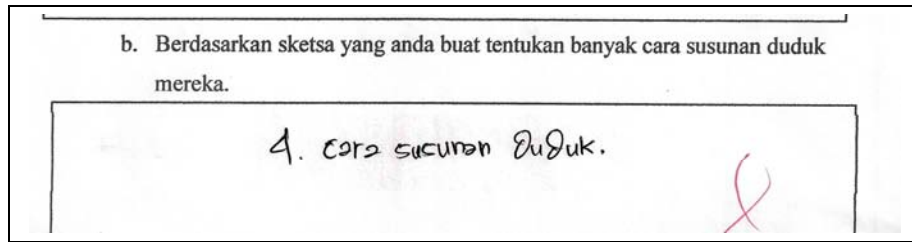 b. Berdasarkan sketsa yang anda buat tentukan banyak cara susunan duduk
mereka.
4. cara sucunan duduk.